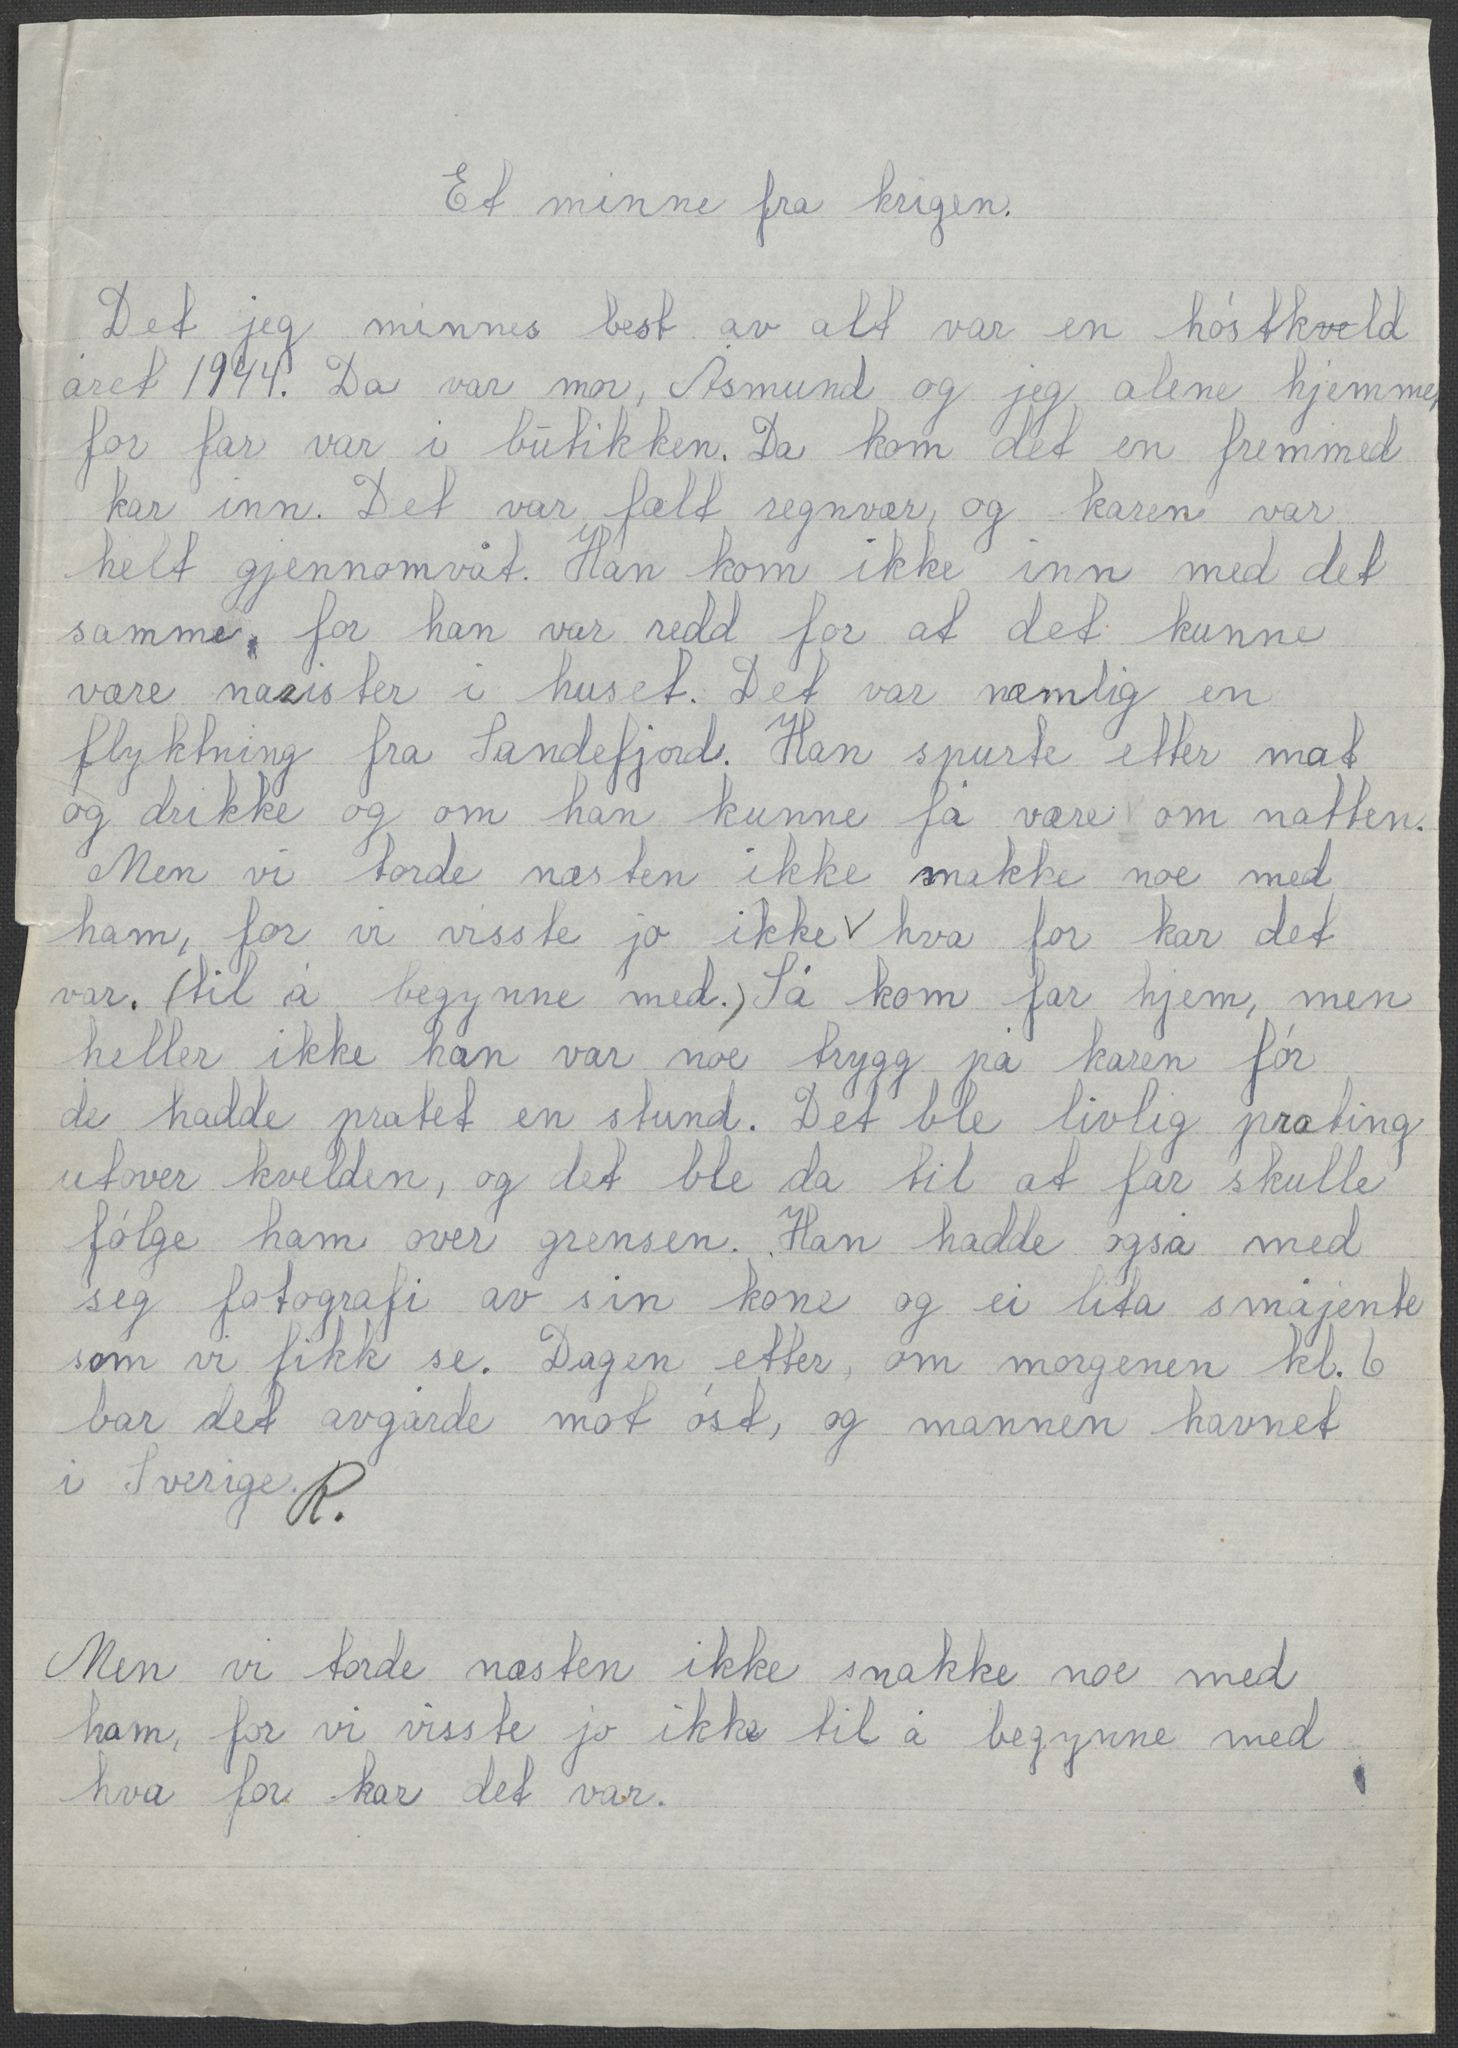 Et minne fra krigen.
Det jeg minnes best av alt var en høstkveld
året 1944. Da var mor, Åsmund og jeg alene hjemme,
for far var i butikken. Da kom det en fremmed
kar inn. Det var fælt regnvær, og karen var
helt gjennomvåt. Han kom ikke inn med det
samme, for han var redd for at det kunne
være nazister i huset. Det var næmlig en
flyktning fra Sandefjord. Han spurte etter mat
og drikke og om han kunne få være om natten.
Men vi torde næsten ikke snakke noe med
ham, for vi visste jo ikke √ hva for kar det
var. (til å begynne med.) Så kom far hjem, men
heller ikke han var noe trygg på karen før
de hadde pratet en stund. Det ble livlig prating
utover kvelden, og det ble da til at far skulle
følge ham over grensen. Han hadde også med
seg fotografi av sin kone og ei lita småjente
som vi fikk se. Dagen etter, om morgenen kl. 6
bar det avgårde mot øst, og mannen havnet
i Sverige. R.
Men vi torde næsten ikke snakke noe med
ham, for vi visste jo ikke til å begynne med
hva for kar det var.